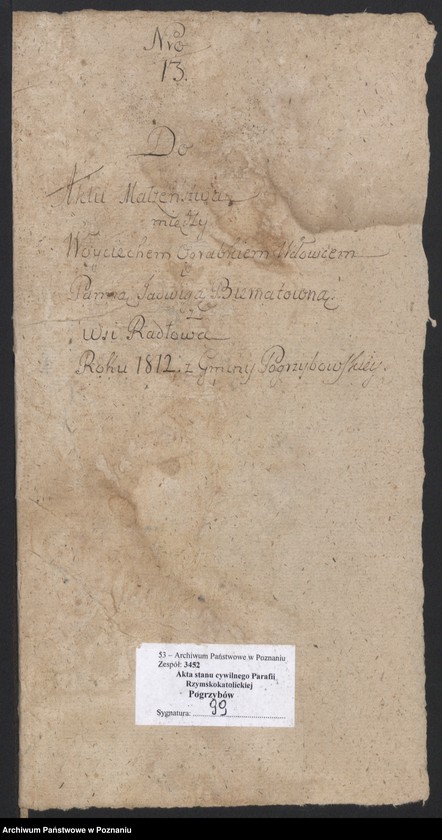 Nro
13.
Do
Aktu Małżeństwa
między
Woyciechem Grabkiem Wdowcem
Panną Jadwigą
z
Wsi Radłowa
Roku 1812. z Gminy Pogrzybowskiey.
53 – Archiwum Państwowe w Poznaniu
Zespół: 3452
Akta stanu cywilnego Parafii
Rzymskokatolickiej
Pogrzybów
Sygnatura: 99
Archiwum Państwowe w Poznaniu